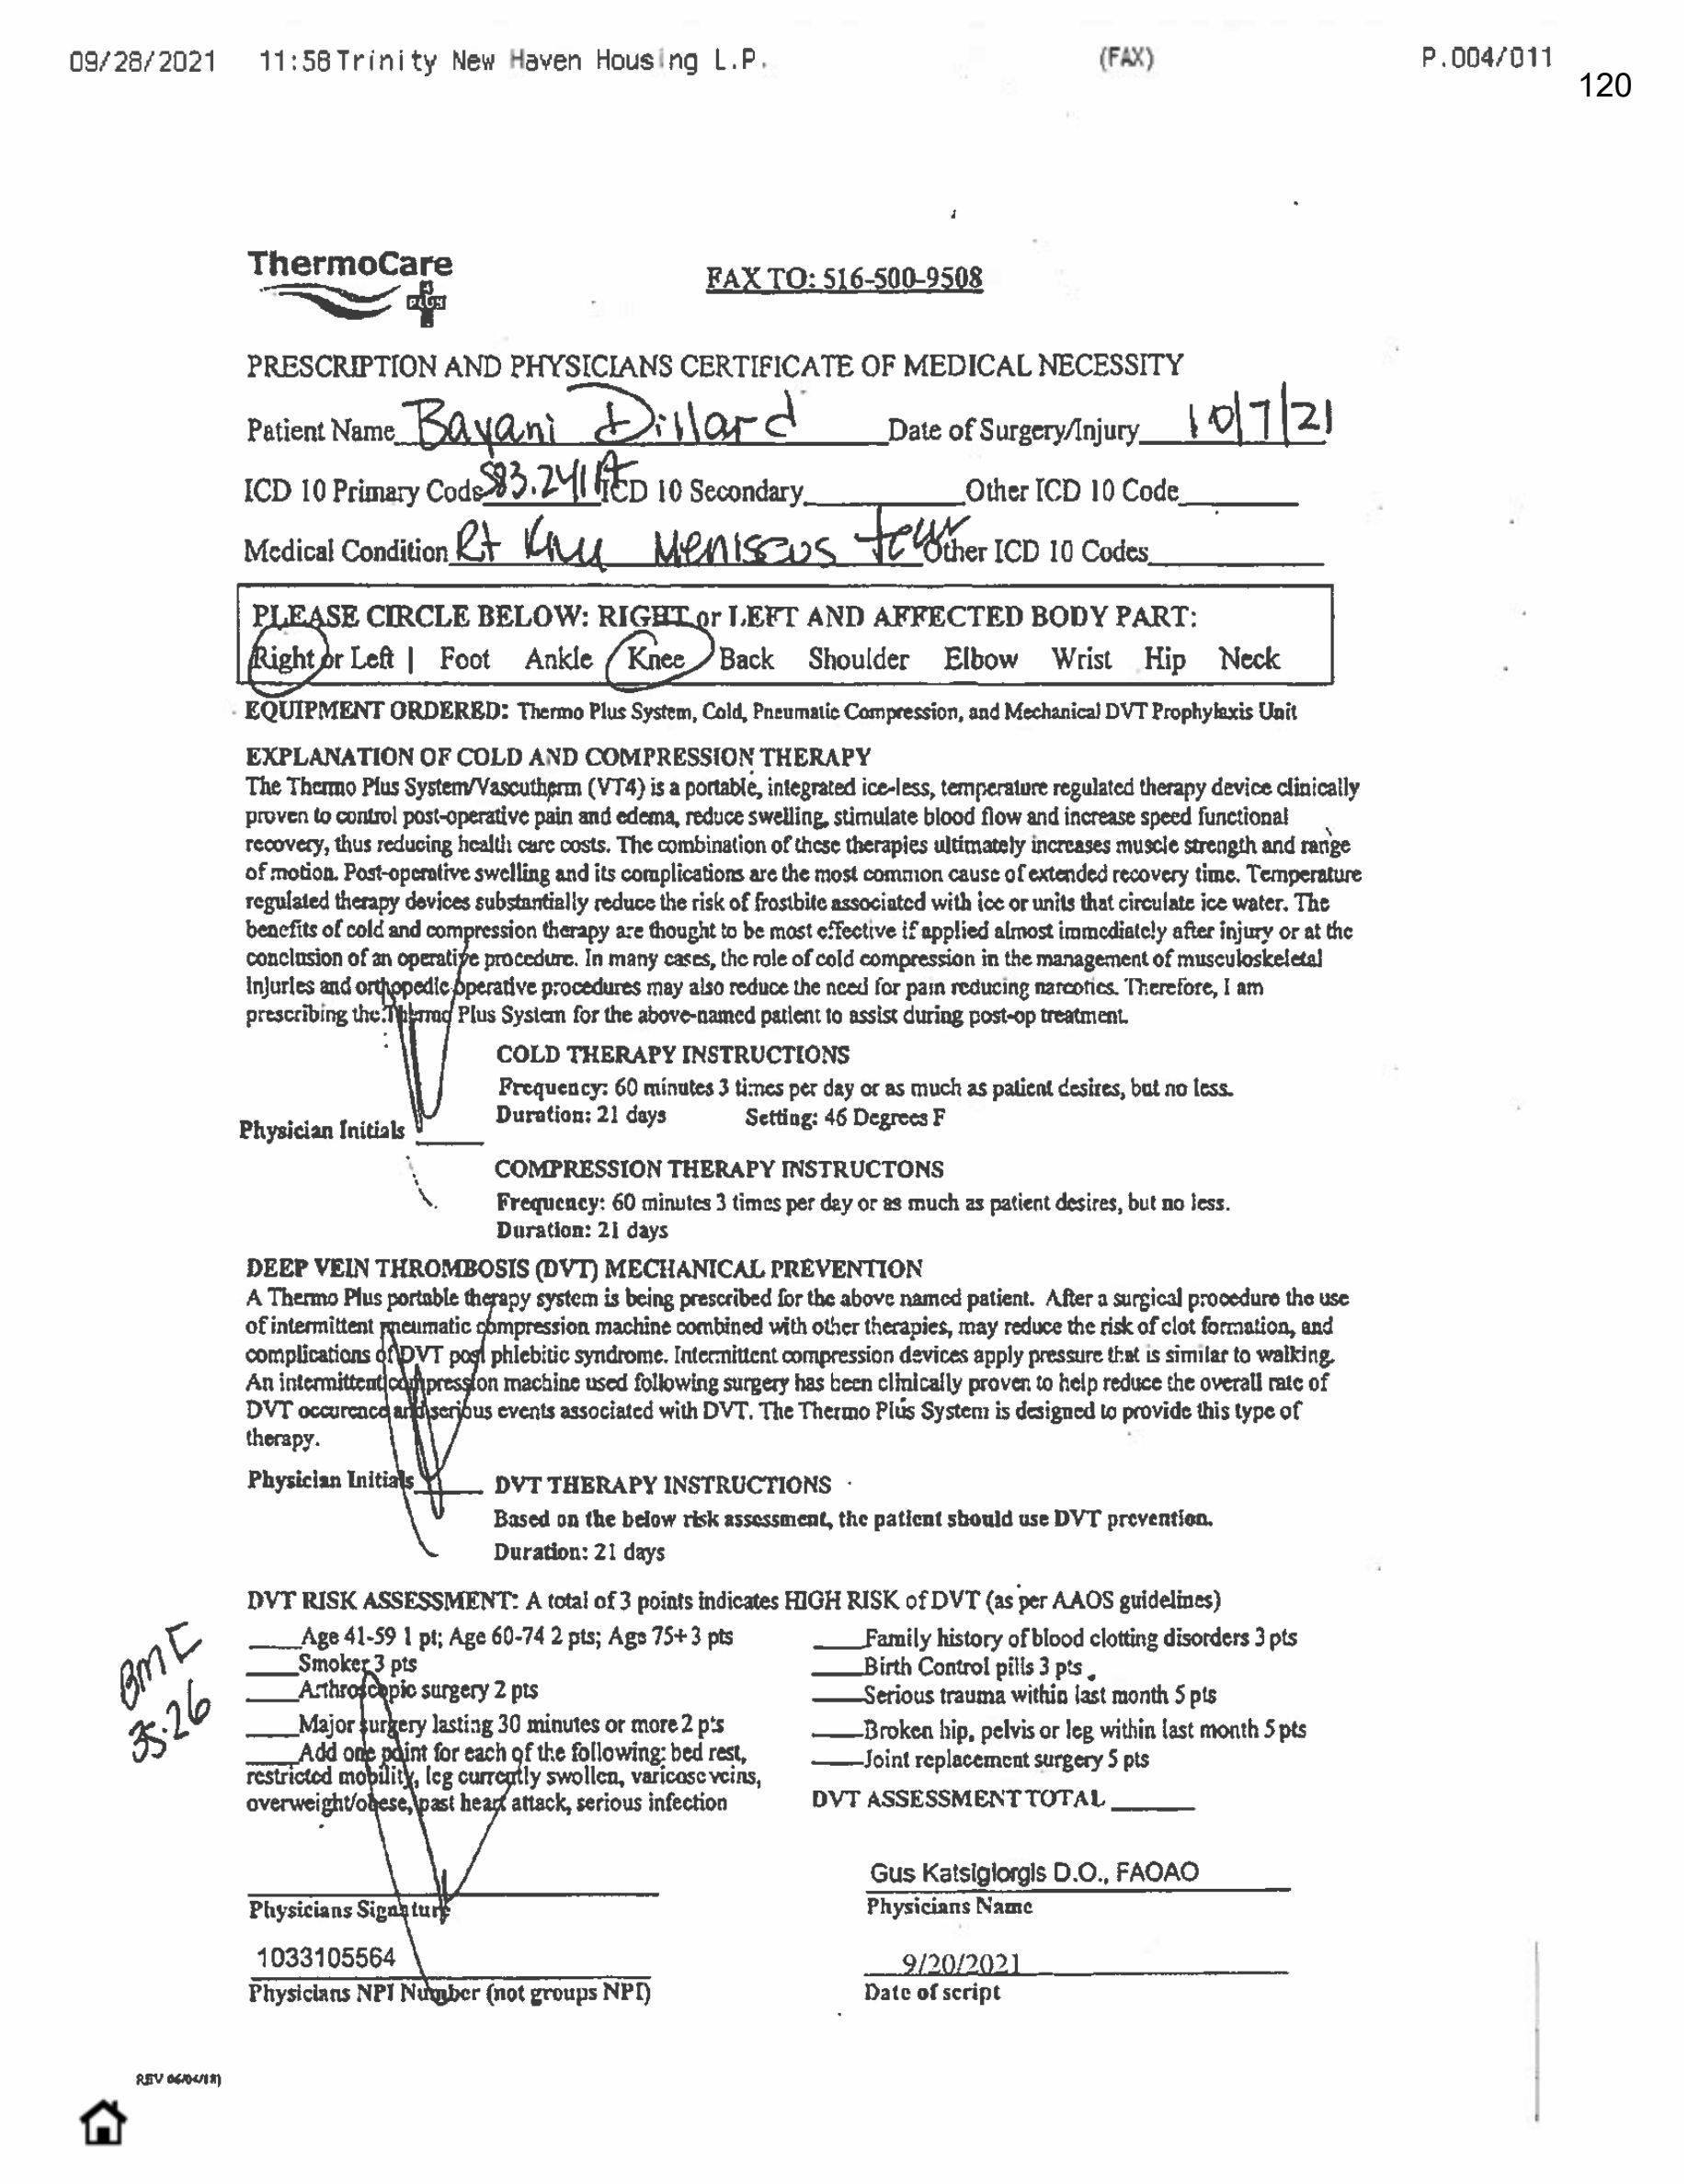 09/28/2021 11:58 Trinity New Haven Housing L.P. (FAX) P.004/011
120
ThermoCare
PLUS
FAX TO: 516-500-9508
PRESCRIPTION AND PHYSICIANS CERTIFICATE OF MEDICAL NECESSITY
Patient Name Bayani Dillard Date of Surgery/Injury 10/7/21
ICD 10 Primary Code S83.241A ICD 10 Secondary Other ICD 10 Code
Medical Condition Rt Knee Meniscus tear Other ICD 10 Codes
PLEASE CIRCLE BELOW: RIGHT or LEFT AND AFFECTED BODY PART:
Right or Left | Foot Ankle Knee Back Shoulder Elbow Wrist Hip Neck
EQUIPMENT ORDERED: Thermo Plus System, Cold, Pneumatic Compression, and Mechanical DVT Prophylaxis Unit
EXPLANATION OF COLD AND COMPRESSION THERAPY
The Thermo Plus System/Vascutherm (VT4) is a portable, integrated ice-less, temperature regulated therapy device clinically
proven to control post-operative pain and edema, reduce swelling, stimulate blood flow and increase speed functional
recovery, thus reducing health care costs. The combination of these therapies ultimately increases muscle strength and range
of motion. Post-operative swelling and its complications are the most common cause of extended recovery time. Temperature
regulated therapy devices substantially reduce the risk of frostbite associated with ice or units that circulate ice water. The
benefits of cold and compression therapy are thought to be most effective if applied almost immediately after injury or at the
conclusion of an operative procedure. In many cases, the role of cold compression in the management of musculoskeletal
injuries and orthopedic operative procedures may also reduce the need for pain reducing narcotics. Therefore, I am
prescribing the Thermo Plus System for the above-named patient to assist during post-op treatment.
COLD THERAPY INSTRUCTIONS
Frequency: 60 minutes 3 times per day or as much as patient desires, but no less.
Duration: 21 days Setting: 46 Degrees F
Physician Initials
COMPRESSION THERAPY INSTRUCTONS
Frequency: 60 minutes 3 times per day or as much as patient desires, but no less.
Duration: 21 days
DEEP VEIN THROMBOSIS (DVT) MECHANICAL PREVENTION
A Thermo Plus portable therapy system is being prescribed for the above named patient. After a surgical procedure the use
of intermittent pneumatic compression machine combined with other therapies, may reduce the risk of clot formation, and
complications of DVT post phlebitic syndrome. Intermittent compression devices apply pressure that is similar to walking.
An intermittent compression machine used following surgery has been clinically proven to help reduce the overall rate of
DVT occurence and serious events associated with DVT. The Thermo Plus System is designed to provide this type of
therapy.
Physician Initials DVT THERAPY INSTRUCTIONS
Based on the below risk assessment, the patient should use DVT prevention.
Duration: 21 days
DVT RISK ASSESSMENT: A total of 3 points indicates HIGH RISK of DVT (as per AAOS guidelines)
BMI
35.26
Age 41-59 1 pt; Age 60-74 2 pts; Age 75+ 3 pts
Smoker 3 pts
Arthroscopic surgery 2 pts
Major surgery lasting 30 minutes or more 2 pts
Add one point for each of the following: bed rest,
restricted mobility, leg currently swollen, varicose veins,
overweight/obese, past heart attack, serious infection
Family history of blood clotting disorders 3 pts
Birth Control pills 3 pts
Serious trauma within last month 5 pts
Broken hip, pelvis or leg within last month 5 pts
Joint replacement surgery 5 pts
DVT ASSESSMENT TOTAL
Gus Katsigiorgis D.O., FAOAO
Physicians Signature Physicians Name
1033105564 9/20/2021
Physicians NPI Number (not groups NPI) Date of script
REV 06/04/18)